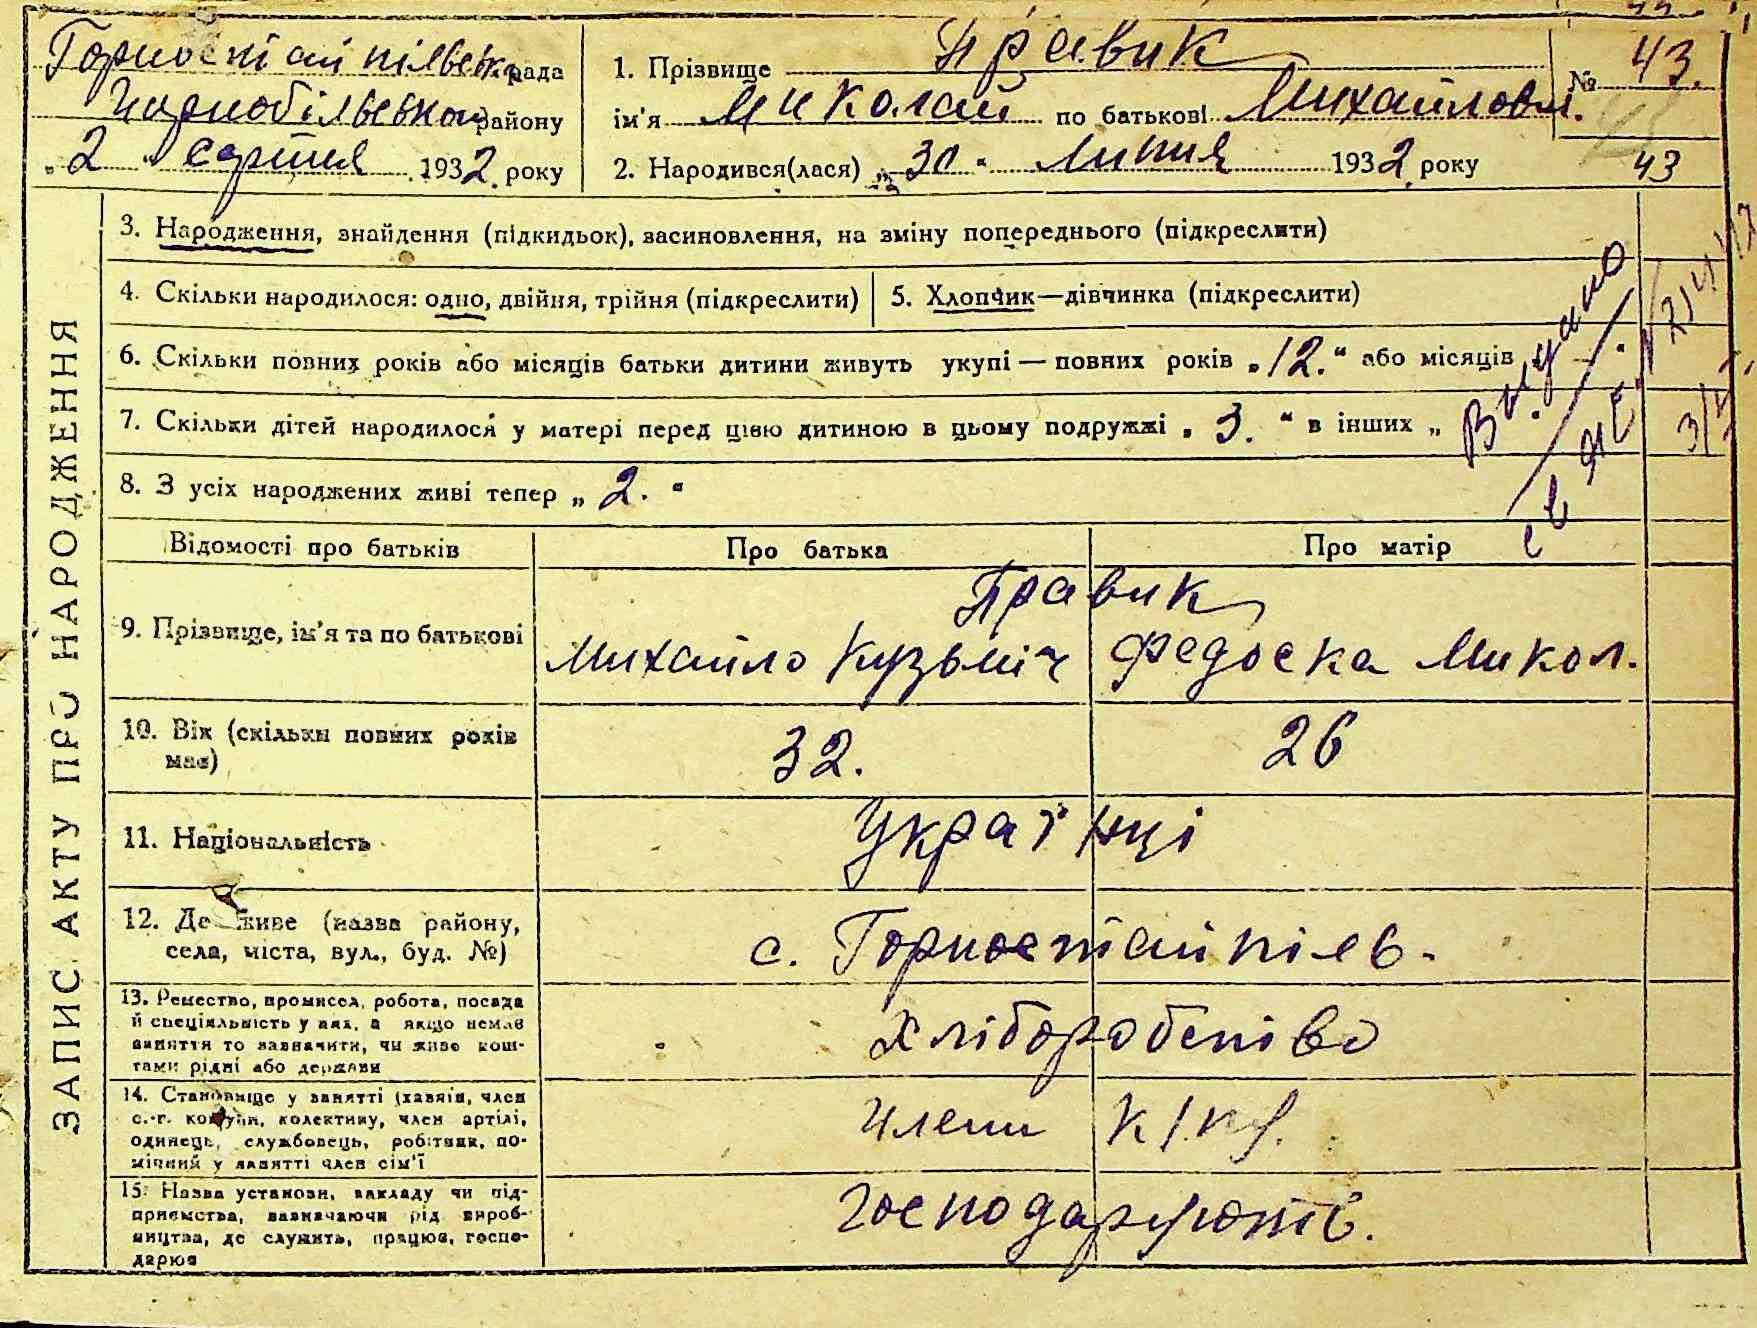 Горностайпільська рада
Чорнобильського району
„2" серпня 1932 року
1. Прізвище Правик
ім'я Николай по батькові Михайлов.
2. Народився(лася) „30" липня 1932 року
№ 43.
43
ЗАПИС АКТУ ПРО НАРОДЖЕННЯ
3. Народження, знайдення (підкидьок), засиновлення, на зміну попереднього (підкреслити)
4. Скільки народилося: одно, двійня, трійня (підкреслити)
5. Хлопчик—дівчинка (підкреслити)
6. Скільки повних років або місяців батьки дитини живуть укупі — повних років „12." або місяців „ — "
7. Скільки дітей народилося у матері перед цією дитиною в цьому подружжі „ 3. " в інших „
8. З усіх народжених живі тепер „ 2. "
Выдано
Відомості про батьків
Про батька
Про матір
9. Прізвище, ім'я та по батькові
Правик
Михайло Кузьміч
Федоска Микол.
10. Вік (скільки повних років
має)
32.
26
11. Національність
Українці
12. Де живе (назва району,
села, міста, вул., буд. №)
с. Горностайпіль.
13. Ремество, промисел, робота, посада
й спеціяльність у них, а якщо немає
заняття то зазначити, чи живе кош-
тами рідні або держави
хліборобство
14. Становище у занятті (хазяїн, член
с.-г. комуни, колективу, член артілі,
одинець, службовець, робітник, по-
мічний у занятті член сім'ї
члени
15. Назва установи, закладу чи під-
приємства, зазначаючи рід вироб-
ництва, де служить, працює, госпо-
дарює
господарюють.